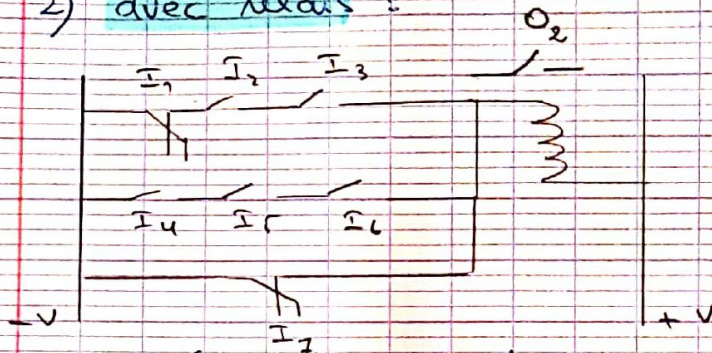 2) avec relais :
O2
I1 I2 I3
I4 I5 I6
I7
- V + V